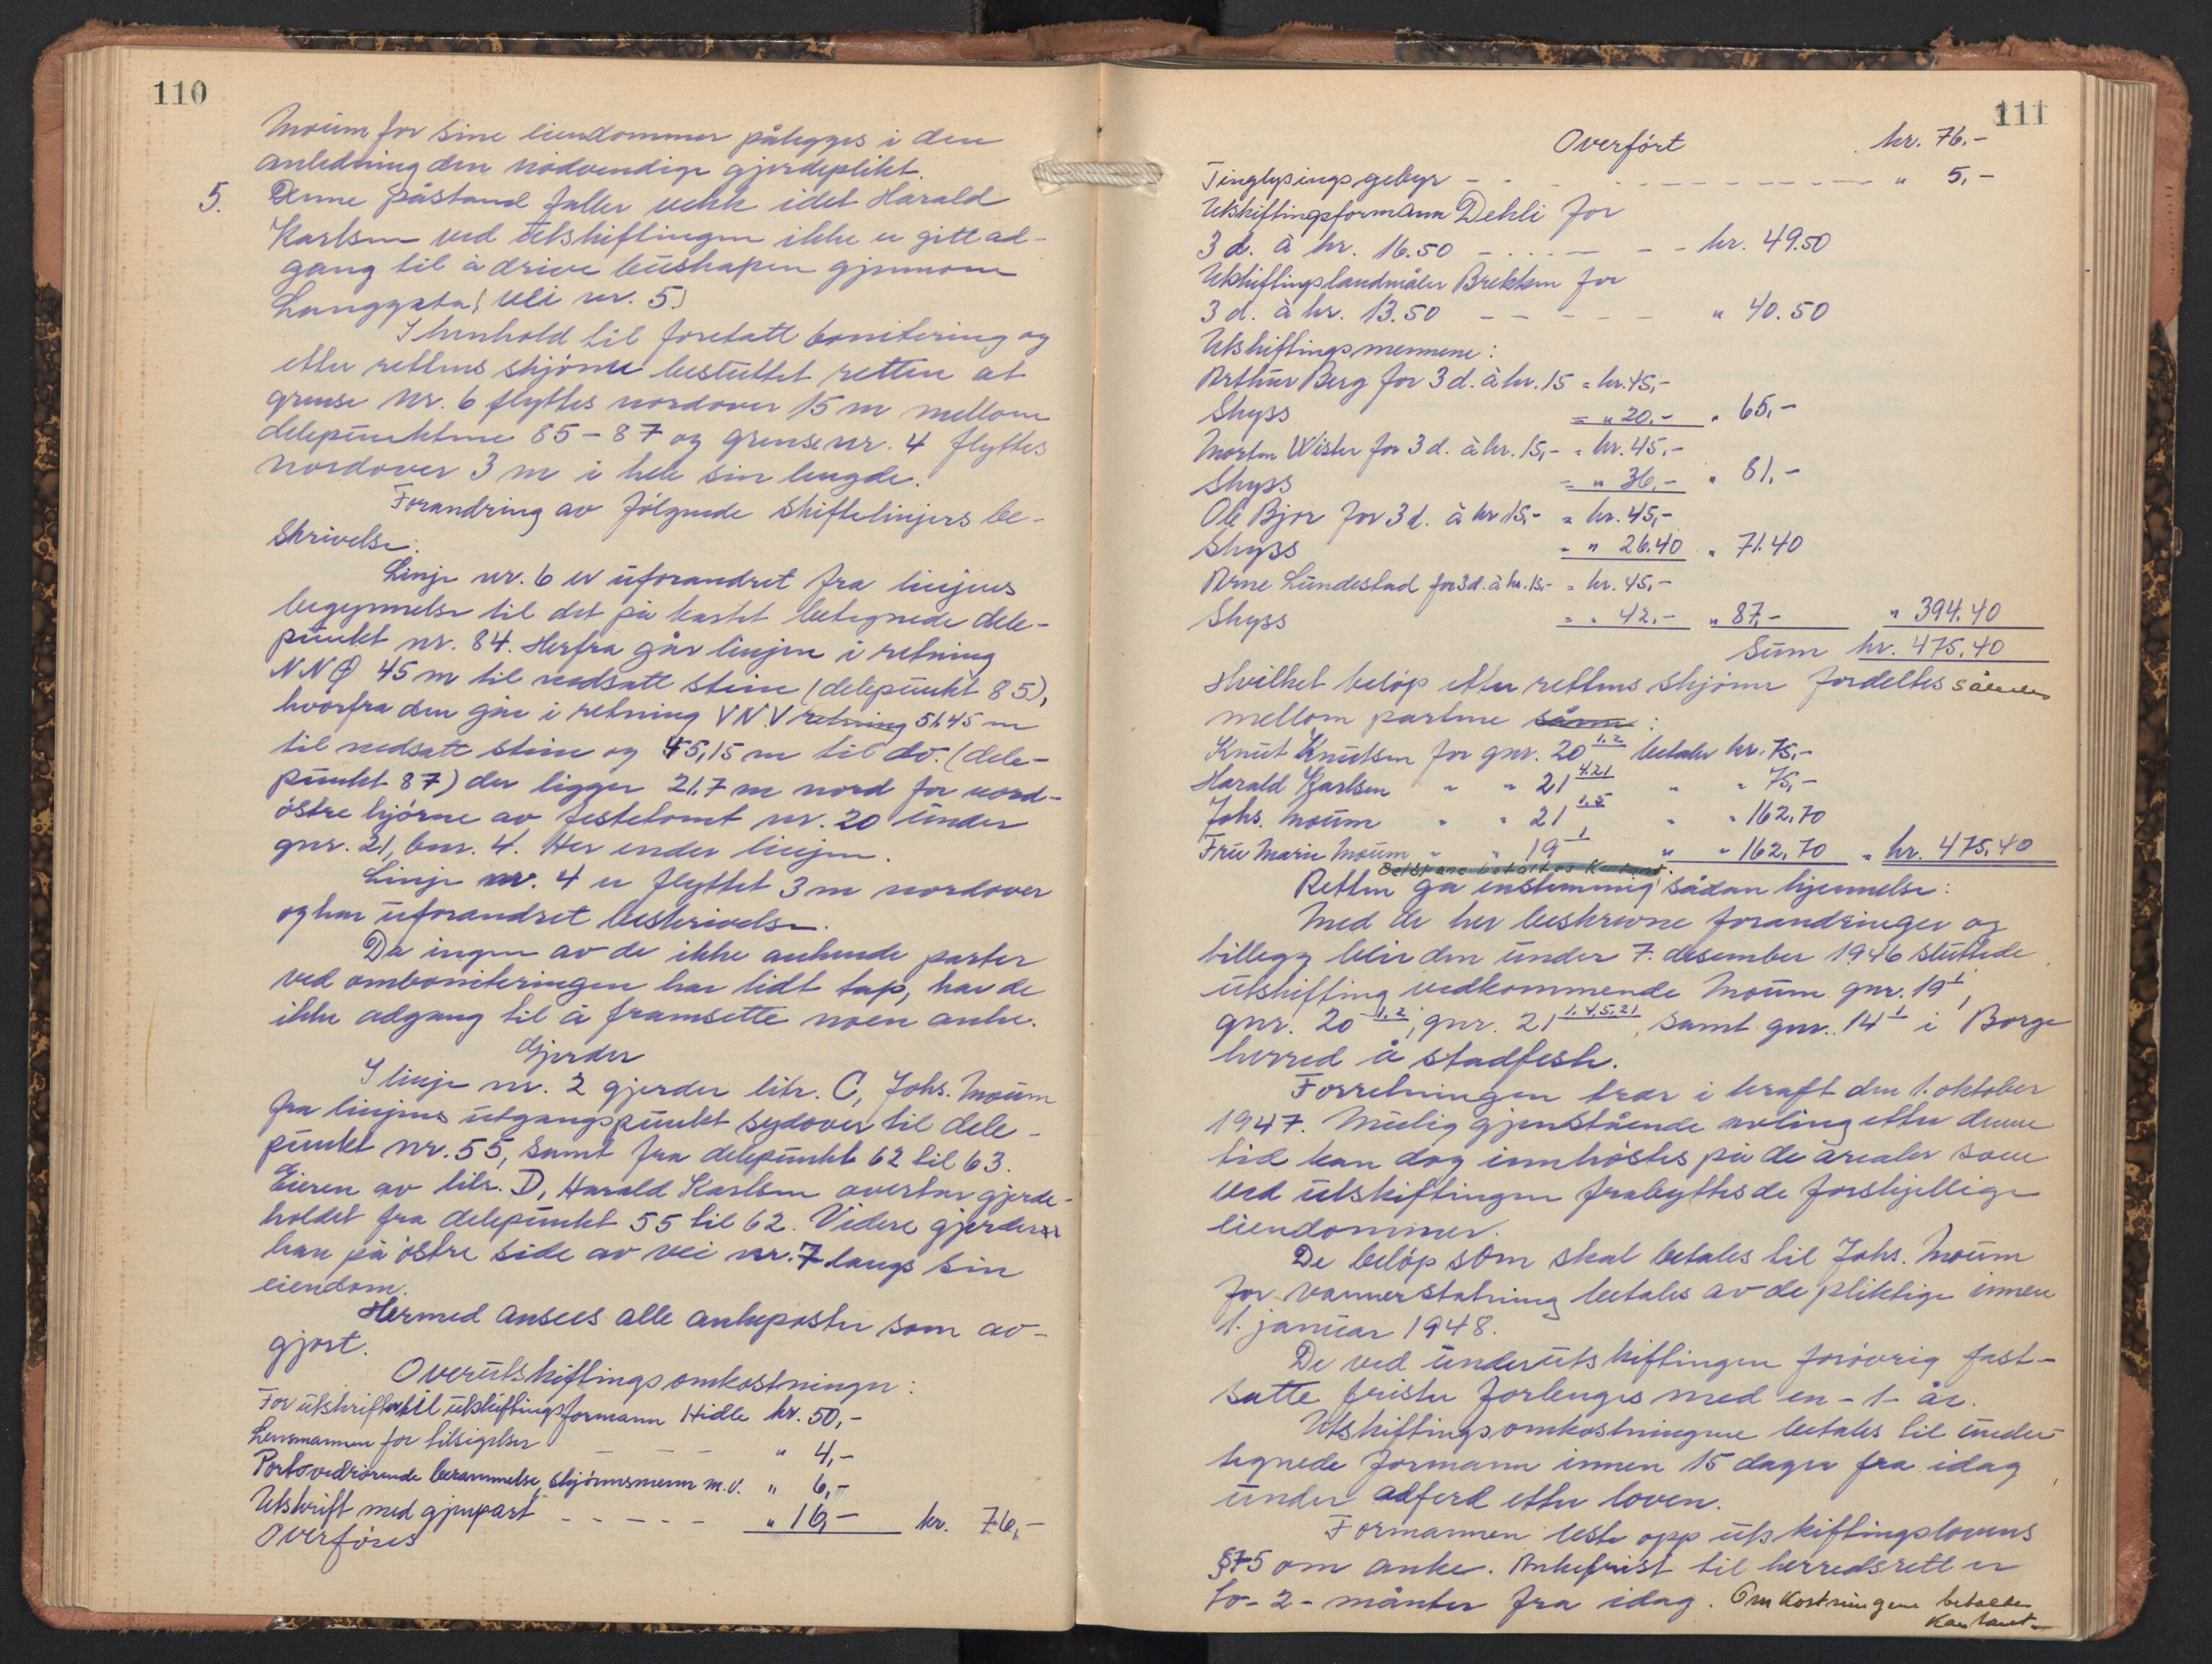 110
Moum for sine eiendommer pålegges i den
anledning den nødvendige gjerdeplikt.
5. Denne påstand faller vekk idet Harald
Karlsen ved utskiftingen ikke er gitt ad-
gang til å drive buskapen gjennom
Langgata (vei nr. 5)
I henhold til foretatt bonitering og
etter rettens skjønn besluttet retten at
grense nr. 6 flyttes nordover 15 m mellom
delepunktene 85-87 og grense nr. 4 flyttes
nordover 3 m i hele sin lengde.
Forandring av følgende skiftelinjers be-
skrivelse:
Linje nr. 6 er uforandret fra linjens
begynnelse til det på kartet betegnede dele-
punkt nr. 84. Herfra går linjen i retning
NNØ 45 m til nedsatt stein (delepunkt 85),
hvorfra den går i retning VNV retning 51.45 m
til nedsatt stein og 45,15 m til do. (dele-
punkt 87) der ligger 21.7 m nord for nord-
østre hjørne av festetomt nr. 20 under
gnr. 21, bnr. 4. Her ender linjen.
Linje nr. 4 er flyttet 3 m nordover
og har uforandret beskrivelse.
Da ingen av de ikke ankende parter
ved omboniteringen har lidt tap, har de
ikke adgang til å framsette noen anke.
Gjerder
I linje nr. 2 gjerder litr. C, Johs. Moum
fra linjens utgangspunkt sydover til dele-
punkt nr. 55, samt fra delepunkt 62 til 63.
Eieren av litr. D, Harald Karlsen overtar gjerde-
holdet fra delepunkt 55 til 62. Videre gjerder
han på østre side av vei nr. 7 langs sin
eiendom.
Hermed ansees alle ankeposter som av-
gjort.
Overutskiftingsomkostninger:
For utskrifter til utskiftingsformann Hidle kr. 50,-
Lensmannen for tilsigelser - - - " 4,-
Porto vedrørende berammelse, skjønnsmenn m.v. " 6,-
Utskrift med gjenpart - - - - - " 16,- kr. 76,-
Overføres
111
Overført kr. 76.-
Tinglysingsgebyr - - - - - - " 5,-
Utskiftingsformann Dehli for
3 d. à kr. 16.50 - - - - - kr. 49.50
Utskiftingslandmåler Brekken for
3 d. à kr. 13.50 - - - - - " 40.50
Utskiftingsmennene:
Arthur Berg for 3 d. à kr. 15 = kr. 45,-
Skyss = " 20,- " 65,-
Morten Wister for 3 d. à kr. 15,- = kr. 45,-
Skyss = " 36,- " 81,-
Ole Bjor for 3 d. à kr 15,- = kr. 45,-
Skyss = " 26.40 " 71.40
Arne Lundestad for 3 d. à kr. 15,- = kr. 45,-
Skyss = " 42,- " 87,- " 394.40
Sum kr. 475.40
Hvilket beløp etter rettens skjønn fordeltes således
mellom partene :
Knut Knutsen for gnr. 20 1,2 betaler kr. 75,-
Harald Karlsen " " 21 4.21 " " 75,-
Johs. Moum " " 21 1,5 " " 162,70
Fru Marie Moum " " 19 1 " " 162,70 = kr. 475,40
Beløpene betaltes kontant.
Retten ga enstemmig sådan kjennelse:
Med de her beskrevne forandringer og
tillegg blir den under 7. desember 1946 sluttede
utskifting vedkommende Moum gnr. 19 1,
gnr. 20 1,2, gnr. 21 1,4,5,21, samt gnr. 14 1 i Borge
herred å stadfeste.
Forretningen trer i kraft den 1. oktober
1947. Mulig gjenstående avling etter denne
tid kan dog innhøstes på de arealer som
ved utskiftingen frabyttes de forskjellige
eiendommer.
De beløp som skal betales til Johs. Moum
for vannerstatning betales av de pliktige innen
1. januar 1948.
De ved underutskiftingen forøvrig fast-
satte frister forlenges med en - 1 - år.
Utskiftingsomkostningene betales til under-
tegnede formann innen 15 dager fra idag
under adferd etter loven.
Formannen leste opp utskiftingslovens
§ 75 om anke. Ankefrist til herredsrett er
to - 2 - månter fra idag. Omkostningene betaltes
kontant.-